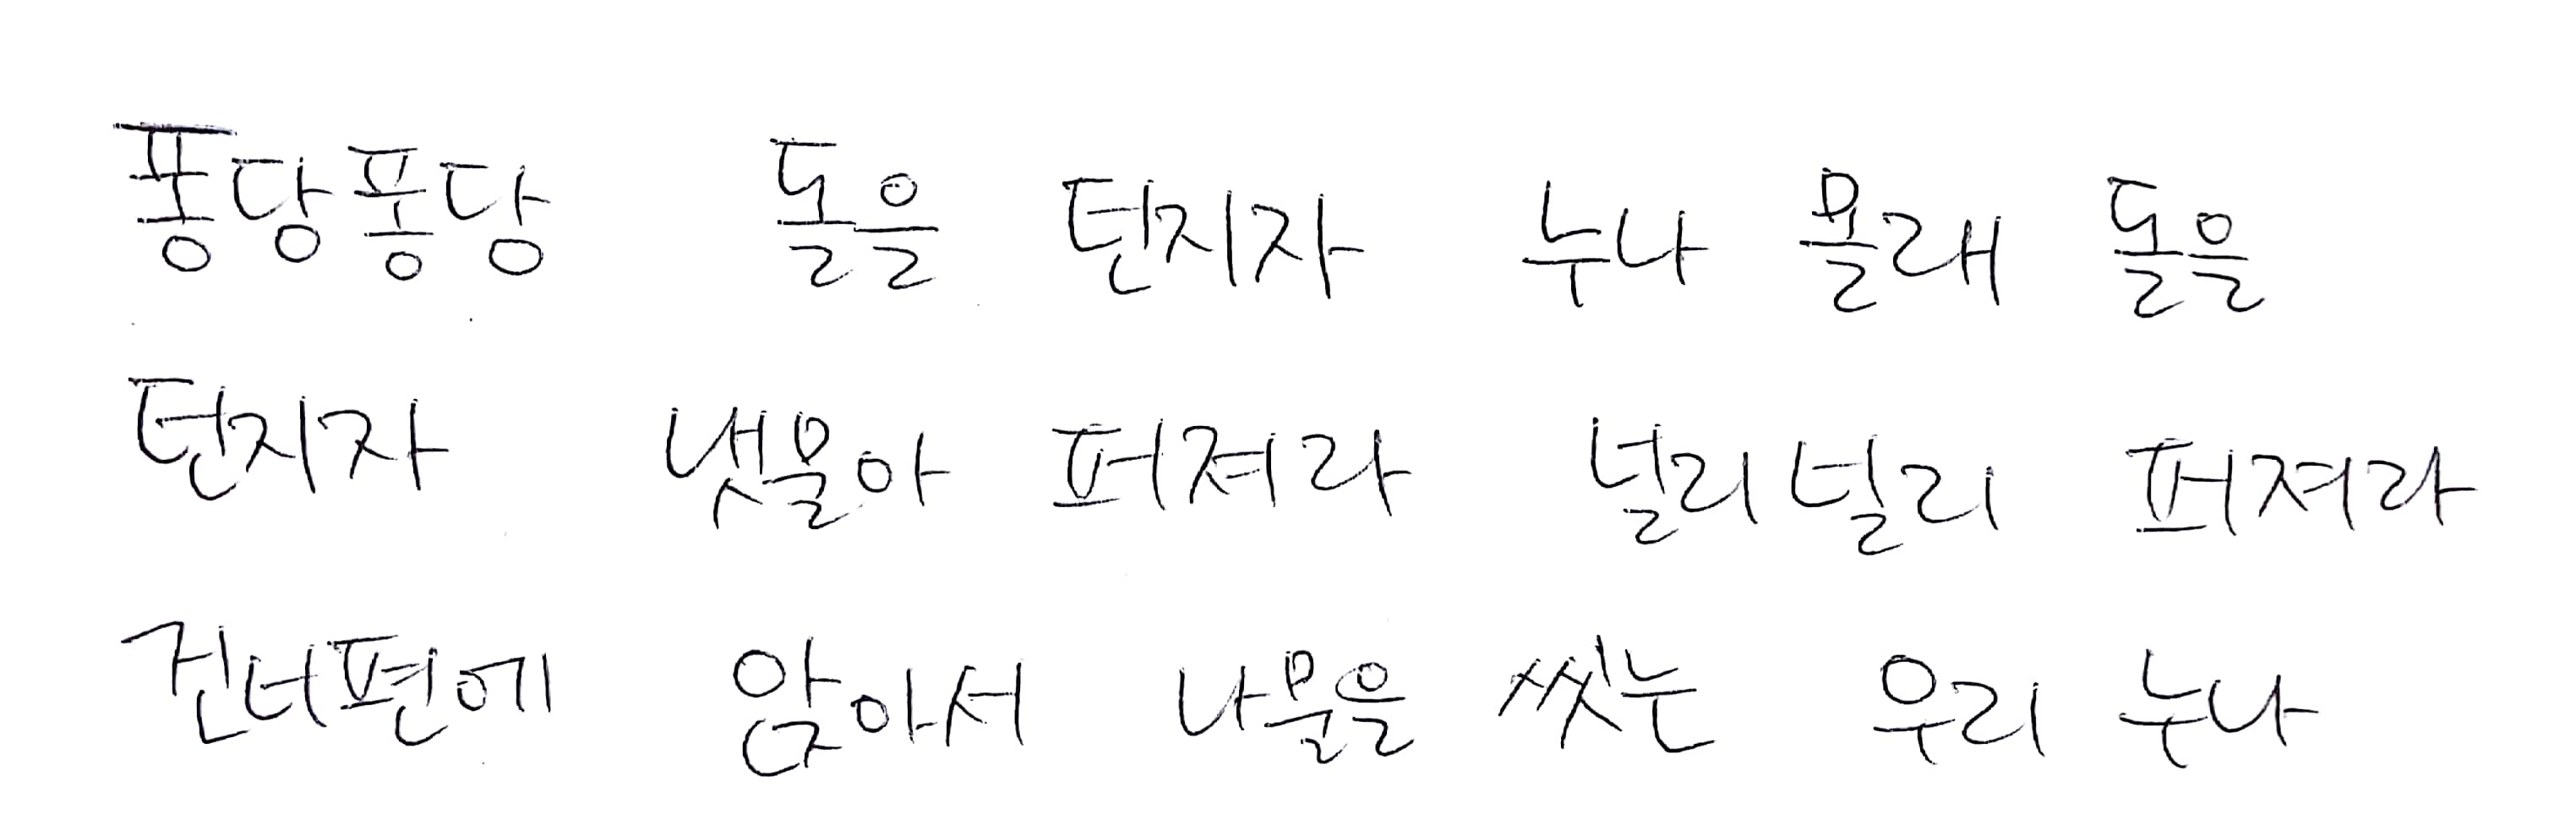 퐁당퐁당 돌을 던지자 누나 몰래 돌을
던지자 냇물아 퍼져라 널리널리 퍼져라
건너편에 앉아서 나물을 씻는 우리 누나